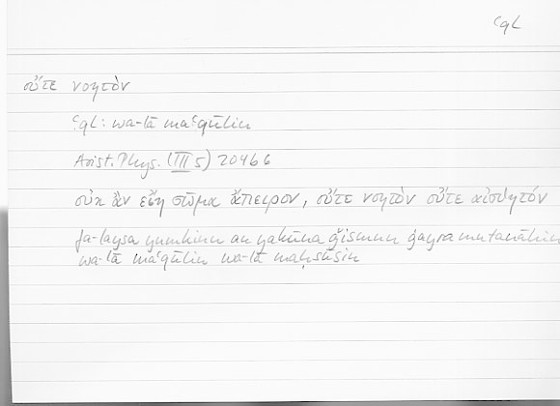 ʿqL
οὔτε νοητὸν
ʿqL: wa-lā maʿqūlin
Arist. Phys. (III 5) 204b6
οὐκ ἂν εἴη σῶμα ἄπειρον, οὔτε νοητὸν οὔτε αἰσθητόν
fa-laysa yumkinu an yakūna ǧismun ġayra mutanāhin
wa-lā maʿqūlin wa-lā maḥsūsin